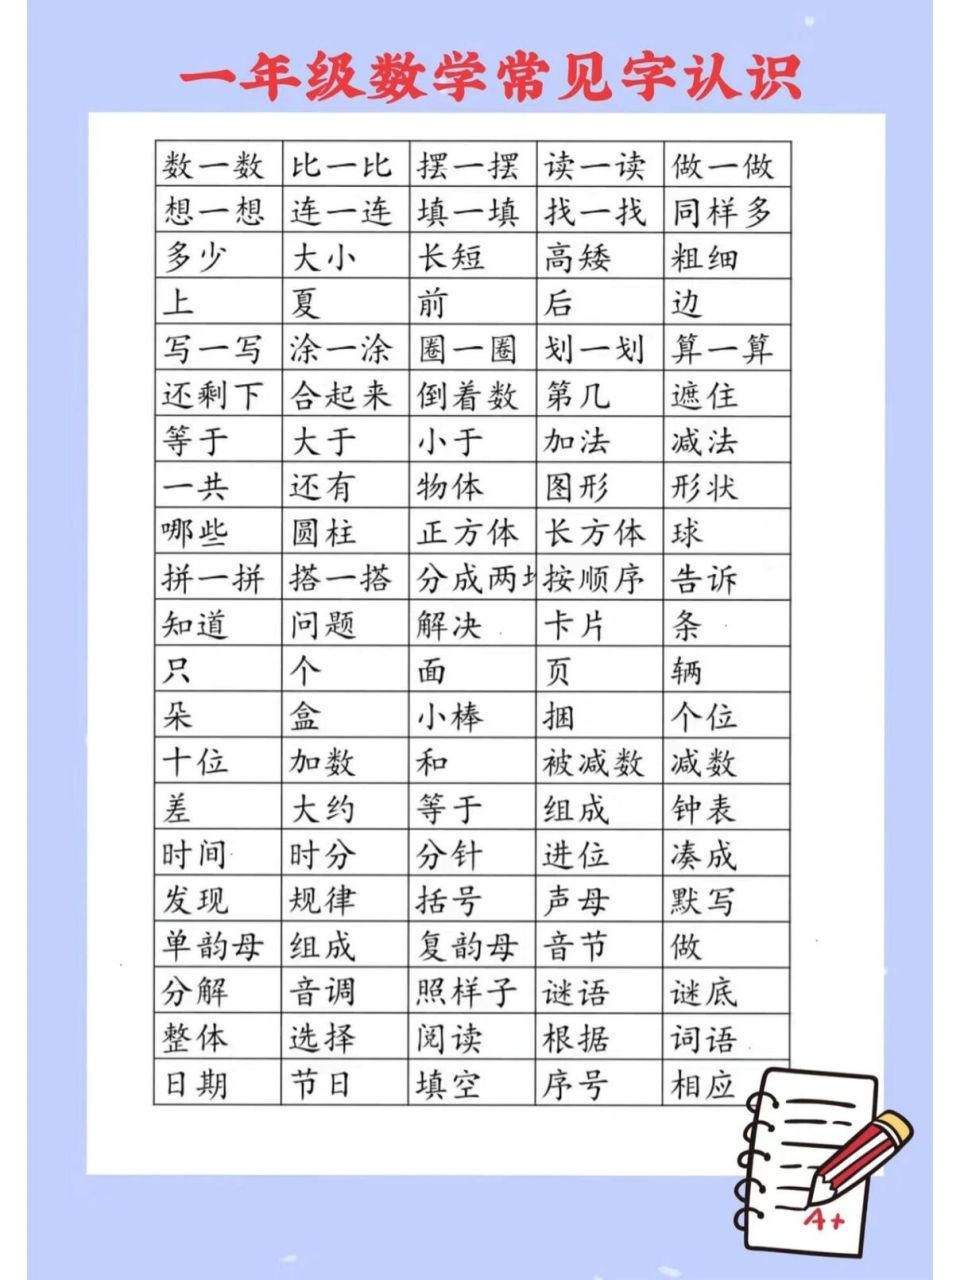 一年级数学常见字认识
数一数 比一比 摆一摆 读一读 做一做
想一想 连一连 填一填 找一找 同样多
多少 大小 长短 高矮 粗细
上 夏 前 后 边
写一写 涂一涂 圈一圈 划一划 算一算
还剩下 合起来 倒着数 第几 遮住
等于 大于 小于 加法 减法
一共 还有 物体 图形 形状
哪些 圆柱 正方体 长方体 球
拼一拼 搭一搭 分成两 按顺序 告诉
知道 问题 解决 卡片 条
只 个 面 页 辆
朵 盒 小棒 捆 个位
十位 加数 和 被减数 减数
差 大约 等于 组成 钟表
时间 时分 分针 进位 凑成
发现 规律 括号 声母 默写
单韵母 组成 复韵母 音节 做
分解 音调 照样子 谜语 谜底
整体 选择 阅读 根据 词语
日期 节日 填空 序号 相应
A+